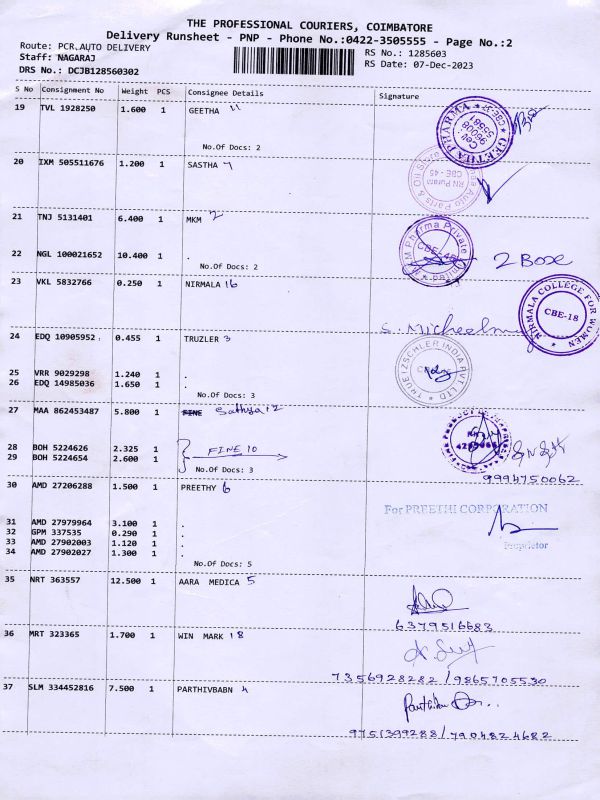 THE PROFESSIONAL COURIERS, COIMBATORE
Delivery Runsheet - PNP - Phone No.:0422-3505555 - Page No.:2
Route: PCR.AUTO DELIVERY RS No.: 1285603
Staff: NAGARAJ RS Date: 07-Dec-2023
DRS No.: DCJB128560302
S No Consignment No Weight PCS Consignee Details Signature
19 TVL 1928250 1.600 1 GEETHA 11
GEETHA PHARMA
No.Of Docs: 2
20 IXM 505511676 1.200 1 SASTHA 7
Auto Parts & Oil Store
RN Puram
CBE - 45
21 TNJ 5131401 6.400 1 MKM 2
Pharma Private
22 NGL 100021652 10.400 1 . 2 BOX
No.Of Docs: 2
23 VKL 5832766 0.250 1 NIRMALA 16
NIRMALA COLLEGE FOR WOMEN
CBE-18
24 EDQ 10905952 0.455 1 TRUZLER 3
TRUETZSCHLER INDIA PVT LTD
25 VRR 9029298 1.240 1 .
26 EDQ 14985036 1.650 1 .
No.Of Docs: 3
27 MAA 862453487 5.800 1 FINE Sathya 12
28 BOH 5224626 2.325 1 FINE 10
29 BOH 5224654 2.600 1
No.Of Docs: 3
9994750062
30 AMD 27206288 1.500 1 PREETHY 6
For PREETHI CORPORATION
31 AMD 27979964 3.100 1 .
32 GPM 337535 0.290 1 .
33 AMD 27902003 1.120 1 .
34 AMD 27902027 1.300 1 .
Proprietor
No.Of Docs: 5
35 NRT 363557 12.500 1 AARA MEDICA 5
6379516683
36 MRT 323365 1.700 1 WIN MARK 18
7356928282 / 9865705530
37 SLM 334452816 7.500 1 PARTHIVBABN 4
9751399288 / 7904824682